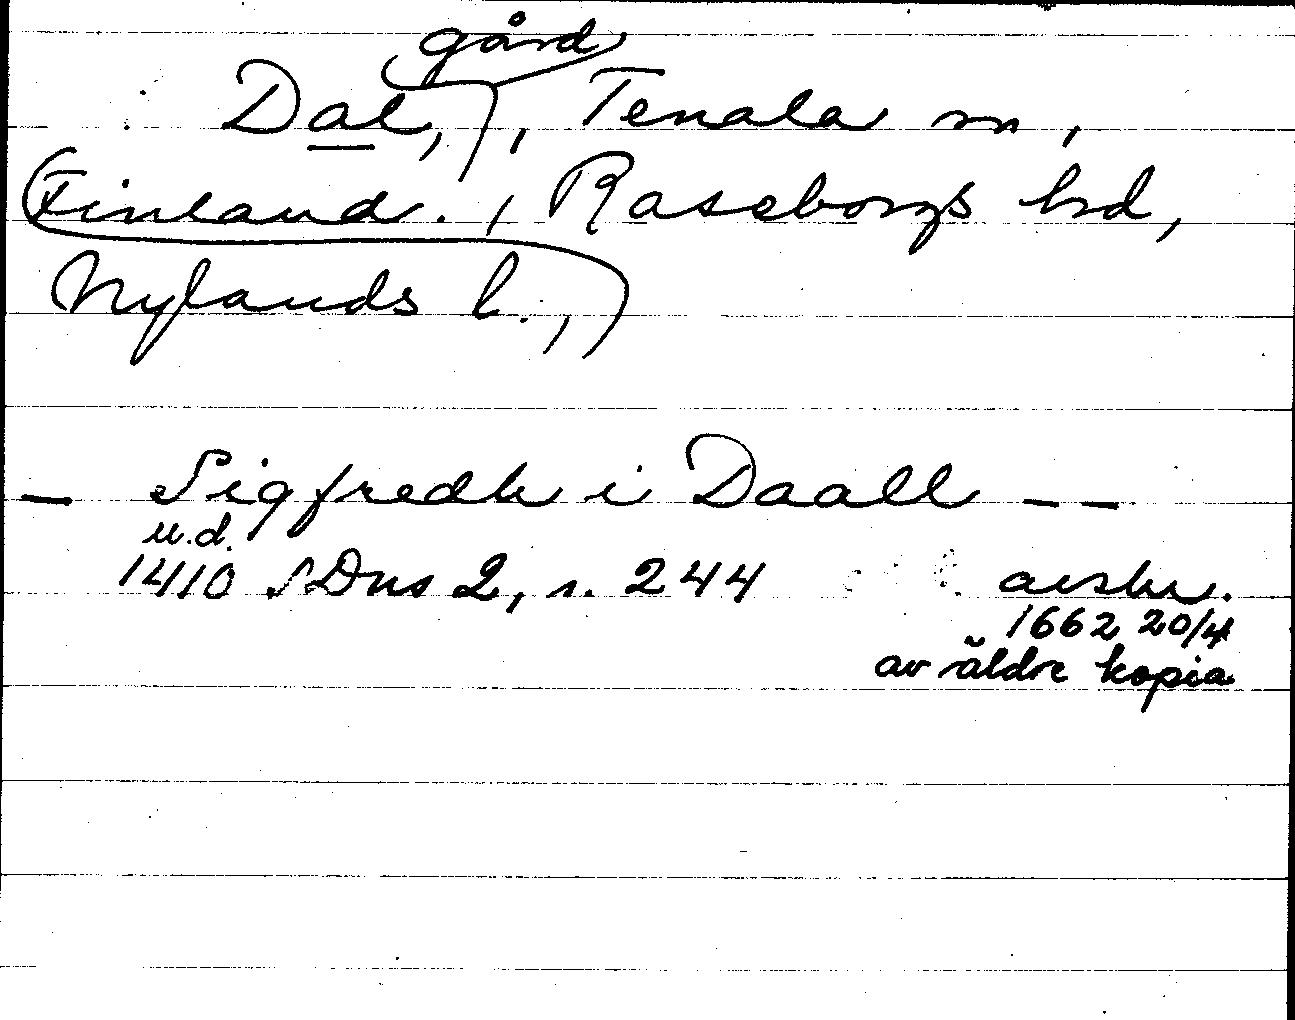 gård
Dal, , Tenala sn,
Finland. , Raseborgs hd,
Nylands l.,
— Sigfredh i Daall — —
u.d.
1410 SDns 2, s. 244 avskr.
1662 20/4
av äldre kopia